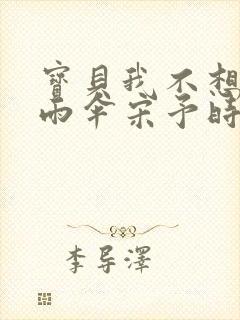 寶貝我不想
雨傘宋予時
李导澤